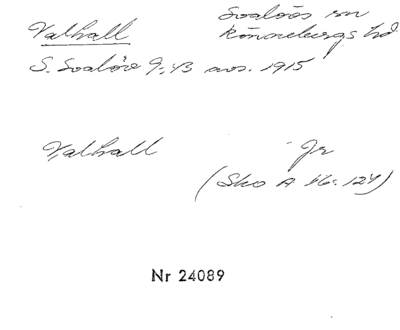 Valhall Svalövs sn
Rönnebergs hd
S. Svalöv 9:43 avs. 1915
Valhall Jr
(Sko A 16:124)
Nr 24089